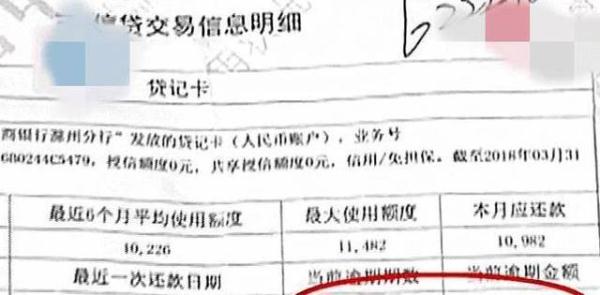 信贷交易信息明细
贷记卡
商银行滁州分行"发放的贷记卡（人民币账户），业务号
680244C5479，授信额度0元，共享授信额度0元，信用/免担保。截至2018年03月31
最近6个月平均使用额度 最大使用额度 本月应还款
10,226 11,482 10,982
最近一次还款日期 当前逾期期数 当前逾期金额